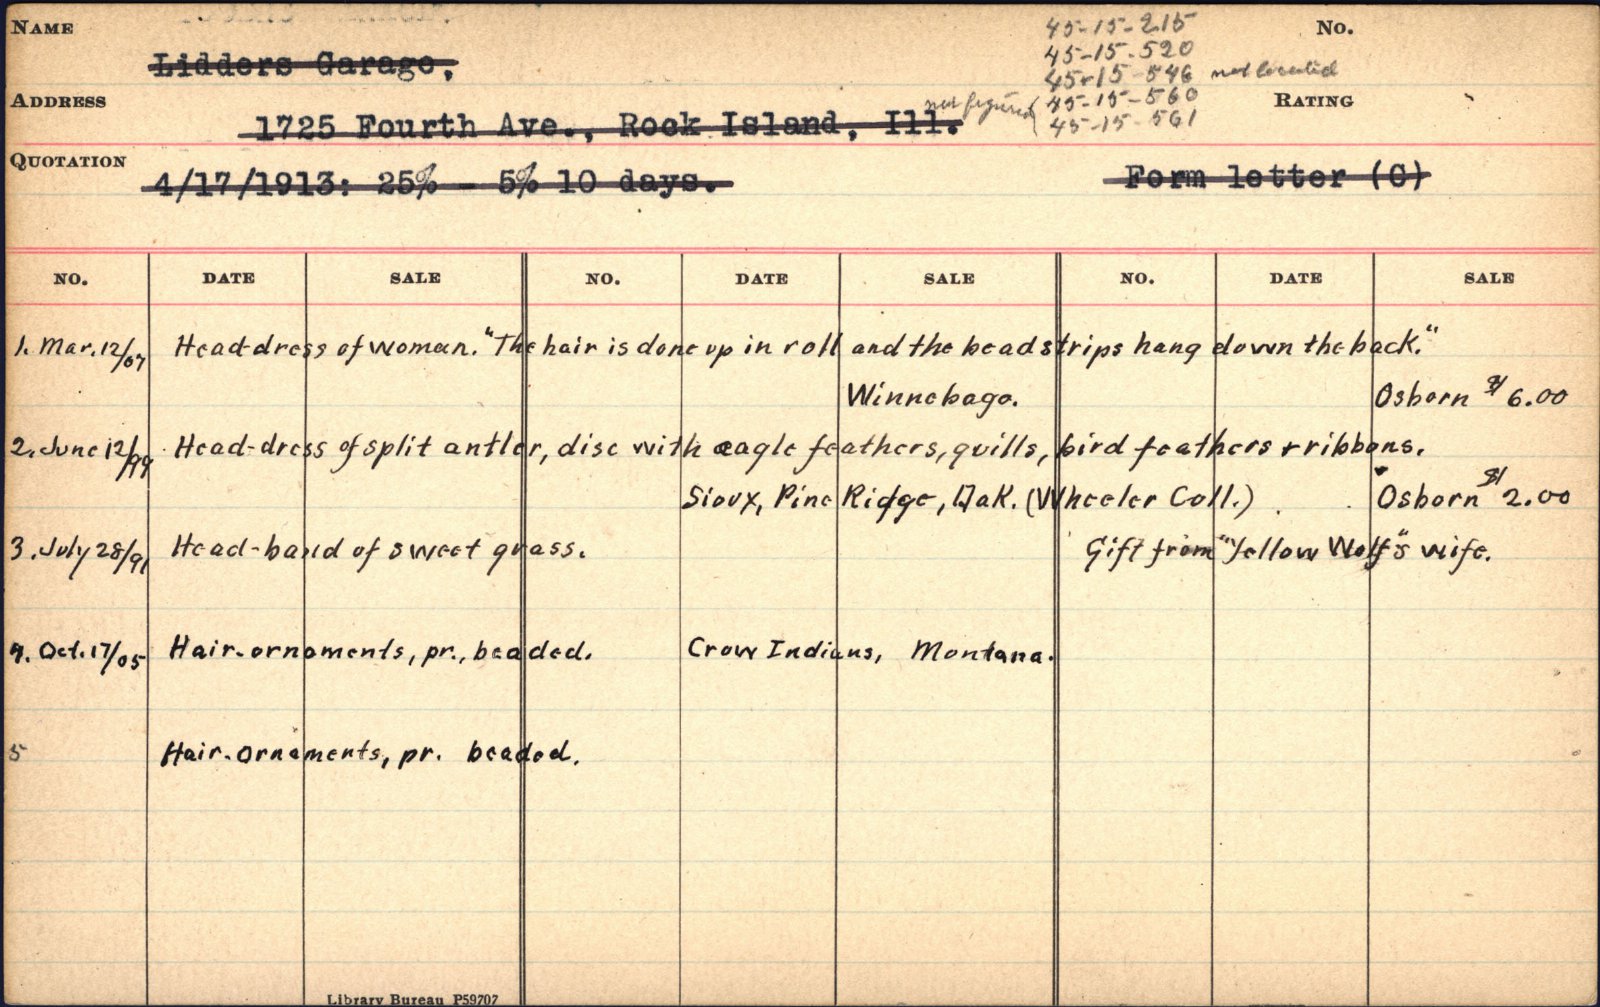 NAME
Lidders Garage,
45-15-215
No.
45-15-520
45-15-546 not located
ADDRESS
1725 Fourth Ave., Rock Island, Ill.
not figured
45-15-560
45-15-561
RATING
QUOTATION
4/17/1913: 25% - 5% 10 days.
Form letter (C)
NO. DATE SALE NO. DATE SALE NO. DATE SALE
1. Mar. 12/07 Head-dress of woman. "The hair is done up in roll and the bead strips hang down the back."
Winnebago. Osborn $ 6.00
2. June 12/99 Head-dress of split antler, disc with eagle feathers, quills, bird feathers + ribbons.
Sioux, Pine Ridge, Dak. (Wheeler Coll.) Osborn $ 2.00
3. July 28/91 Head-band of sweet grass. Gift from "Yellow Wolf"s wife.
4. Oct. 17/05 Hair-ornaments, pr., beaded. Crow Indians, Montana.
5 Hair-ornaments, pr. beaded.
Library Bureau P59707